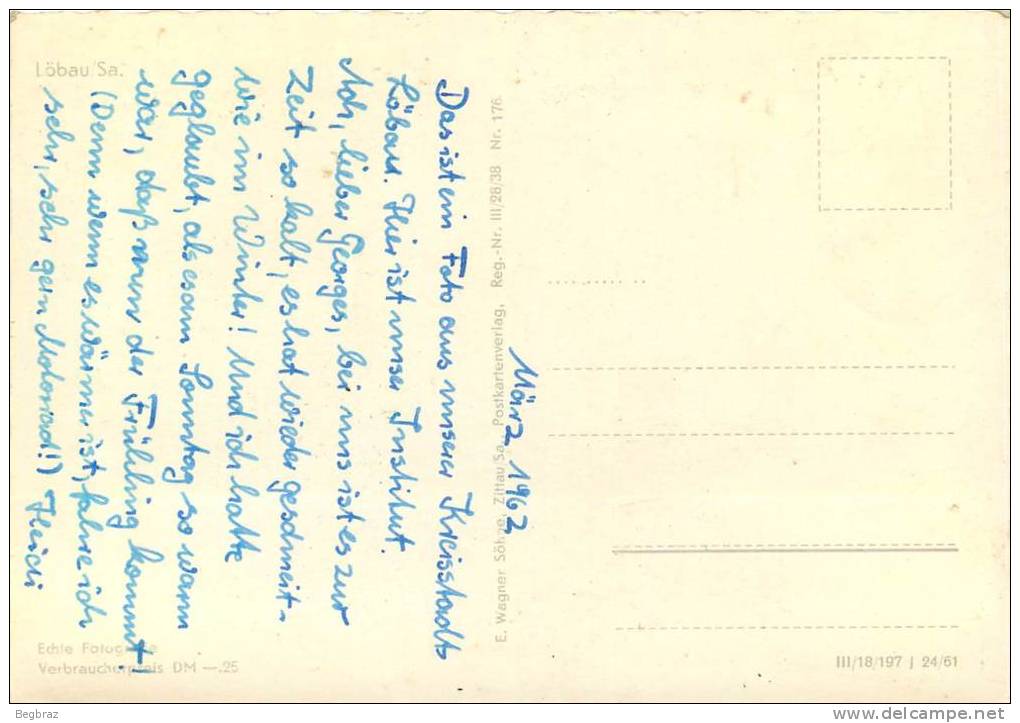 Löbau/Sa.
Das ist ein Foto aus unserer Kreisstadt
Löbau. Hier ist unser Institut.
Ach, lieber Georges, bei uns ist es zur
Zeit so kalt, es hat wieder geschneit -
wie im Winter! Und ich hatte
geglaubt, als es am Sonntag so warm
war, daß nun der Frühling kommt!
(Denn wenn es wärmer ist, fahre ich
sehr, sehr gern Motorrad!)
März 1962
E. Wagner Söhne, Zittau Sa., Postkartenverlag, Reg.-Nr. III/28/38 Nr. 176
Echte Fotografie
Verbraucherpreis DM —.25
III/18/197 J 24/61
Begbraz
delcampe.net